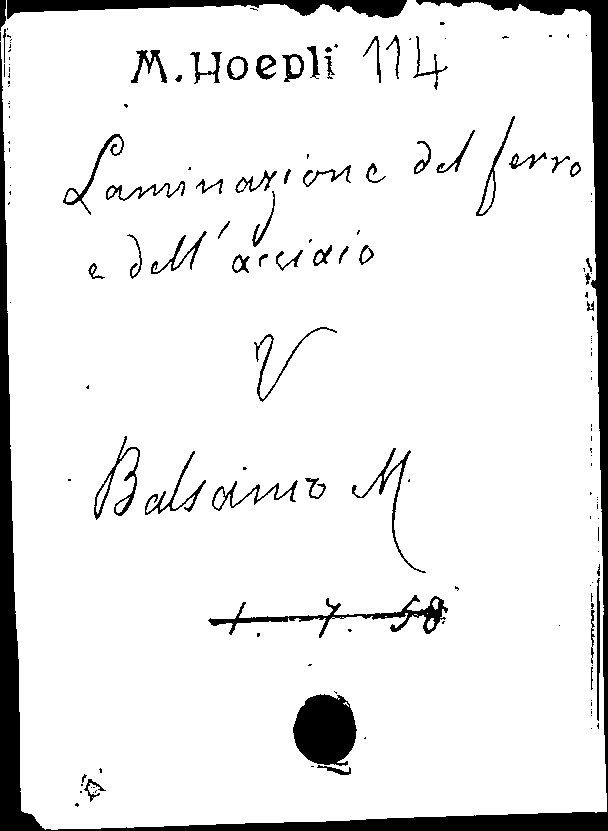 M. Hoepli 114
Laminazione del ferro
e dell'acciaio
V
Balsamo M.
1. 7. 58